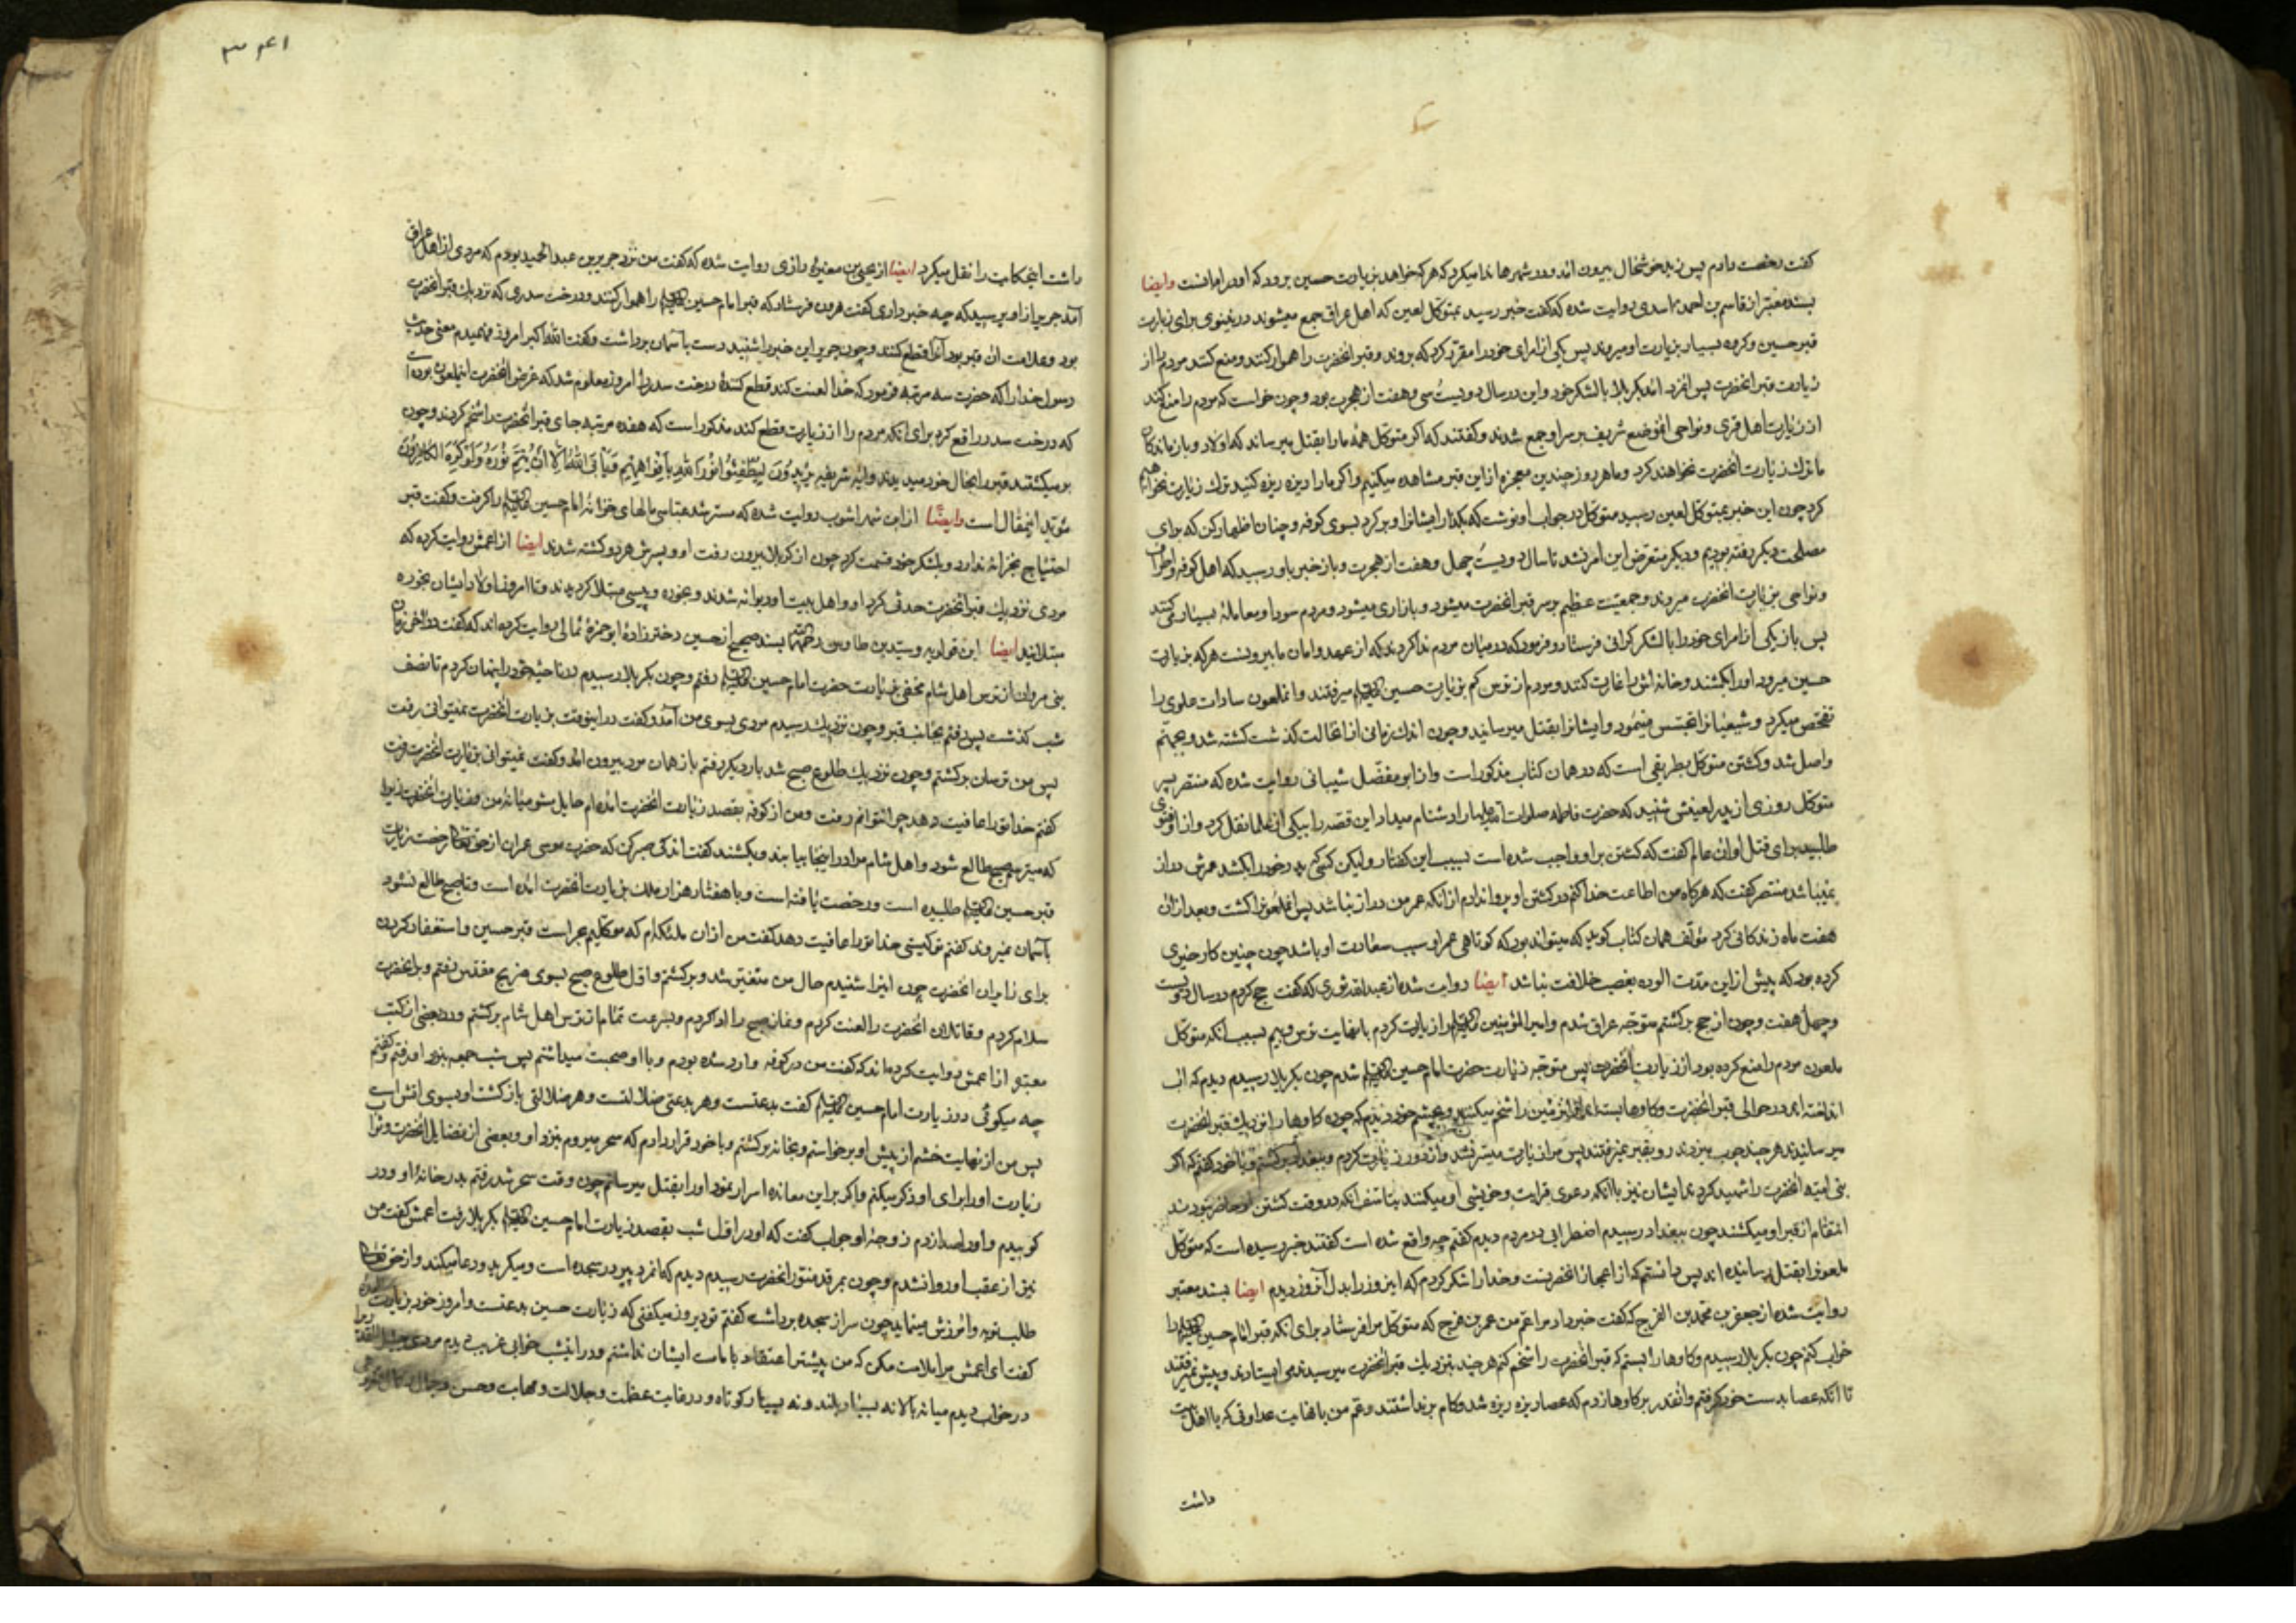 کفت رخصت دادم پس زید خوشحال بیرون آمد و در شهرها ندا میکرد که هر که خواهد بزیارت حسین برود که او در امانست وایضا
بسند معتبر از قاسم بن احمد اسدی روایت شده که کفت خبر رسید بمتوکل لعین که اهل عراق جمع میشوند در نینوی برای زیارت
قبر حسین و کروه بسیار بزیارت او میروند پس یکی از امرای خود را مقرر کرد که بروند و قبر انحضرت را هموار کنند و منع کنند مردم را از
زیارت قبر انحضرت پس آمد بکربلا با لشکر خود و این در سال دویست سی و هفت از هجرت بود و چون خواست که مردم را منع کند
از زیارت اهل قری و نواحی ان موضع شریف بر سر او جمع شدند و کفتند که اکر متوکل همه ما را بقتل میرساند که اولاد و بازماندکان
ما ترك زیارت انحضرت نخواهند کرد و ما هر روز چندین معجزه از این قبر مشاهده میکنیم و اکر ما را ریزه ریزه کنید ترك زیارت نخواهیم
کرد چون این خبر بمتوکل لعین رسید متوکل در جواب او نوشت که بکذار ایشانرا و برکرد بسوی کوفه و چنان اظهار کن که برای
مصلحت دیکر رفته بودیم و دیکر متعرض این امر نشد تا سال دویست چهل و هفت از هجرت و باز خبر باو رسید که اهل کوفه و اطراف
و نواحی بزیارت انحضرت میروند و جمعیت عظیم بر سر قبر انحضرت میشود و بازاری میشود و مردم سودا و معامله بسیار می کنند
پس باز یکی از امرای خود را با لشکر کرانی فرستاد و فرمود که در میان مردم ندا کردند که از عهد و امان ما بیرونست هر که بزیارت
حسین میرود او را بکشند و خانه اش را غارت کنند و مردم از ترس کم بزیارت حسین میرفتند و انملعون سادات علوی را
تفحص میکرد و شیعیانرا تجسس مینمود و ایشانرا بقتل میرسانید و چون اندك زمانی از انحالت کذشت کشته شد و بجهنم
واصل شد و کشتن متوکل بطریقی است که در همان کتاب مذکور است و از ابو مفضل شیبانی روایت شده که منتصر پسر
متوکل روزی از پدر لعینش شنید که حضرت فاطمه صلوات الله علیها را دشنام میداد این قصه را بیکی از علما نقل کرد و از او فتوی
طلبید برای قتل او ان عالم کفت که کشتن بر او واجب شده است بسبب این کفتار ولیکن کسی که پدر خود را بکشد عمرش دراز
نمیباشد منتصر کفت که هرکاه من اطاعت خدا کنم در کشتن او پروا ندارم از انکه عمر من دراز نباشد پس انملعونرا کشت و بعد از ان
هفت ماه زندکانی کرد مؤلف همان کتاب کوید که میتواند بود که کوتاهی عمر او سبب سعادت او باشد چون چنین کار خیری
کرده بود که پیش از این مدت الوده بغصب خلافت نباشد ایضا روایت شده از عبدالله ثوری که کفت حج کردم در سال دویست
و چهل هفت و چون از حج برکشتم متوجه عراق شدم و امیرالمؤمنین را زیارت کردم با نهایت ترس و بیم بسبب انکه متوکل
ملعون مردم را منع کرده بود از زیارت انحضرت پس متوجه زیارت حضرت امام حسین شدم چون بکربلا رسیدم دیدم که آب
انداخته اند در حوالی قبر انحضرت و کاوها بسته اند و ان زمین را شخم میکنند و بچشم خود دیدم که چون کاوها را بنزدیك قبر انحضرت
میرسانیدند هر چند چوب میزدند رو بقبر نمیرفتند پس مرا زیارت میسر نشد و از دور زیارت کردم و ببغداد برکشتم و با خود کفتم که اکر
بنی امیه انحضرت را شهید کردند ایشان نیز با انکه دعوی قرابت و خویشی او میکنند بتاسف انکه در وقت کشتن او حاضر نبودند
انتقام از قبر او میکشند چون ببغداد رسیدم اضطرابی در مردم دیدم کفتم چه واقع شده است کفتند خبر رسیده است که متوکل
ملعونرا بقتل رسانیده اند پس دانستم که از اعجاز انحضرتست و خدا را شکر کردم که این روز را بدل آنروز دیدم ایضا بسند معتبر
روایت شده از جعفر بن محمد بن الفرج که کفت خبر داد مرا عم من عمر بن فرج که متوکل مرا فرستاد برای انکه قبر امام حسین را
خراب کنم چون بکربلا رسیدم و کاوها را بستم که قبر انحضرت را شخم کنم هر چند بنزدیك قبر انحضرت میرسیدند می ایستادند و پیش نمیرفتند
تا انکه عصا بدست خود کرفتم و انقدر بر کاوها زدم که عصا ریزه ریزه شد و کام برنداشتند و عم من با نهایت عداوتی که با اهل بیت
داشت
داشت اینحکایت را نقل میکرد ایضا از یحیی بن مغیره رازی روایت شده که کفت من نزد جریر بن عبدالحمید بودم که مردی از اهل عراق
آمد جریر از او پرسید که چه خبر داری کفت هرون فرستاد که قبر امام حسین را هموار کنند و درخت سدری که نزدیك قبر انحضرت
بود و علامت ان قبر بود آنرا قطع کنند و چون جریر این خبر را شنید دست بآسمان برداشت و کفت الله اکبر امروز فهمیدم معنی حدیث
رسول خدا را که حضرت سه مرتبه فرمود که خدا لعنت کند قطع کنندهٔ درخت سدر را امروز معلوم شد که غرض انحضرت این ملعون بوده است
که درخت سدر را قطع کرد برای انکه مردم را از زیارت قطع کند مذکور است که هفده مرتبه جای قبر انحضرت را شخم کردند و چون
برمیکشتند قبر را بحال خود میدیدند وایه شریفه یریدون لیطفئوا نور الله بافواههم و یابی الله الا ان یتم نوره و لو کره الکافرون
مؤید اینمقال است وایضا از ابن شهراشوب روایت شده که مسترشد عباسی مالهای خزانهٔ امام حسین را کرفت و کفت قبر
احتیاج بخزانه ندارد و بلشکر خود قسمت کرد چون از کربلا بیرون رفت او و پسرش هر دو کشته شدند ایضا از اعمش روایت کرده که
مردی نزدیك قبر انحضرت حدثی کرد او و اهل بیت او دیوانه شدند و بخوره و پیسی مبتلا کردیدند و تا امروز اولاد ایشان بخوره
مبتلایند ایضا ابن قولویه و سید بن طاوس بسند صحیح از حسین دختر زادهٔ ابو حمزهٔ ثمالی روایت کرده اند که کفت در اخر زمان
بنی مروان از ترس اهل شام مخفی بزیارت حضرت امام حسین رفتم و چون بکربلا رسیدم در ناحیهٔ خود را پنهان کردم تا نصف
شب کذشت پس رفتم بجانب قبر و چون نزدیك رسیدم مردی بسوی من آمد و کفت در اینوقت بزیارت انحضرت نمیتوانی رفت
پس من ترسان برکشتم و چون نزدیك طلوع صبح شد بار دیکر رفتم باز همان مرد بیرون امد و کفت نمیتوانی بزیارت انحضرت رفت
کفتم خدا تو را عافیت دهد چرا نتوانم رفت و من از کوفه بقصد زیارت انحضرت امده ام حایل مشو میانهٔ من و زیارت انحضرت زیرا
که میترسم صبح طالع شود و اهل شام مرا در اینجا بیابند و بکشند کفت اندکی صبر کن که حضرت موسی عمران از حق تعالی رخصت زیارت
قبر حسین طلبیده است و رخصت یافته است و با هفتاد هزار ملك بزیارت انحضرت امده است و تا صبح طالع نشود
بآسمان نمیروند کفتم تو کیستی خدا تو را عافیت دهد کفت من از ان ملئکه ام که موکلیم بحراست قبر حسین و استغفار کردن
برای زایران انحضرت چون اینرا شنیدم حال من متغیر شد و برکشتم و اول طلوع صبح بسوی ضریح مقدس رفتم و بر انحضرت
سلام کردم و قاتلان انحضرت را لعنت کردم و نماز صبح را ادا کردم و بسرعت تمام از ترس اهل شام برکشتم و در بعضی از کتب
معتبر از اعمش روایت کرده اند که کفت من در کوفه وارد شده بودم و با او صحبت میداشتم پس شب جمعه بنزد او رفتم و کفتم
چه میکوئی در زیارت امام حسین کفت بدعتست و هر بدعتی ضلالتست و هر ضلالتی بازکشت او بسوی اتش است
پس من از نهایت خشم از پیش او برخواستم و بخانه برکشتم و با خود قرار دادم که سحر میروم بنزد او و بعضی از فضایل انحضرت و ثواب
زیارت او را برای او ذکر میکنم و اکر بر این معانده اسرار نمود او را بقتل میرسانم چون وقت سحر شد رفتم بدر خانهٔ او و در
کوبیدم و او را صدا زدم زوجهٔ او جواب کفت که او در اول شب بقصد زیارت امام حسین بکربلا رفت اعمش کفت من
نیز از عقب او روانه شدم و چون بمرقد منور انحضرت رسیدم دیدم که انمرد پیر در سجده است و میکرید و دعا میکند و از حق تعالی
طلب توبه و آمرزش مینماید چون سر از سجده برداشت کفتم تو دیروز میکفتی که زیارت حسین بدعتست و امروز خود بزیارت امدهٔ
کفت ای اعمش مرا ملامت مکن که من پیشتر اعتقاد بامامت ایشان نداشتم و در اینشب خوابی غریب دیدم
در خواب دیدم میانه بالا نه بسیار بلند و نه بسیار کوتاه و در غایت عظمت و جلالت و مهابت و حسن و جمال